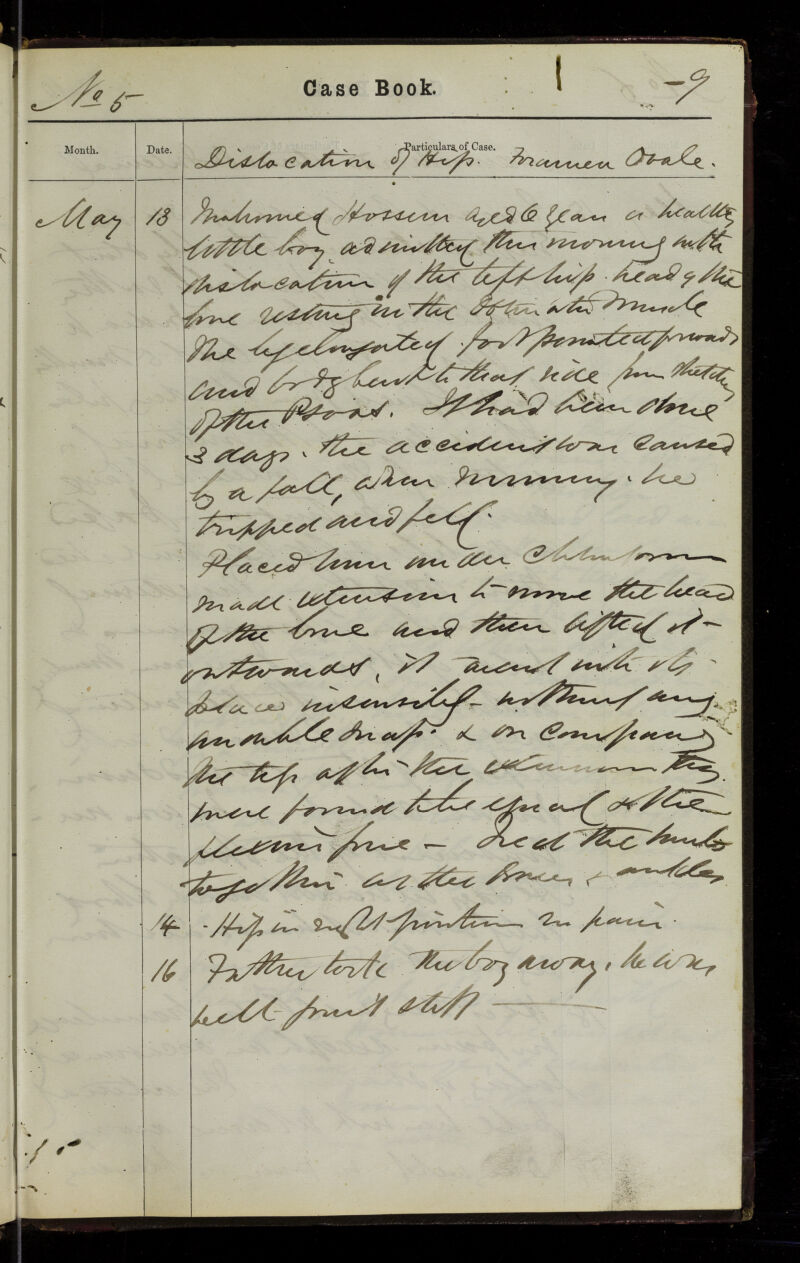 No 5
Case Book.
-9
Month. Date. Particulars of Case.
Dislocation of Hip. Foramen Ovale.
May 13 Mahomed Hossein aged 6 years a healthy
little boy admitted this morning with
dislocation of the left hip. head of the
bone resting in the Obturator Muscle
The leg elongated. foot pointed forwards
and body bent to that side from stretching
of the Psoas. It had been done
3 days. the accident was caused
by a fall, when running. he
tripped and fell.
Placed him under Chloroform
made extension to move the head
of the bone and then lifted it
outwards, it went into its
place insensibly - without any
audible snap. & on comparing
the legs after the extension they
were found to be equal & the
flexion free - Tied the limbs
together at the knees & ankles
14 Hip in right position no pain.
16 Father took the boy away. he was
well joint stiff